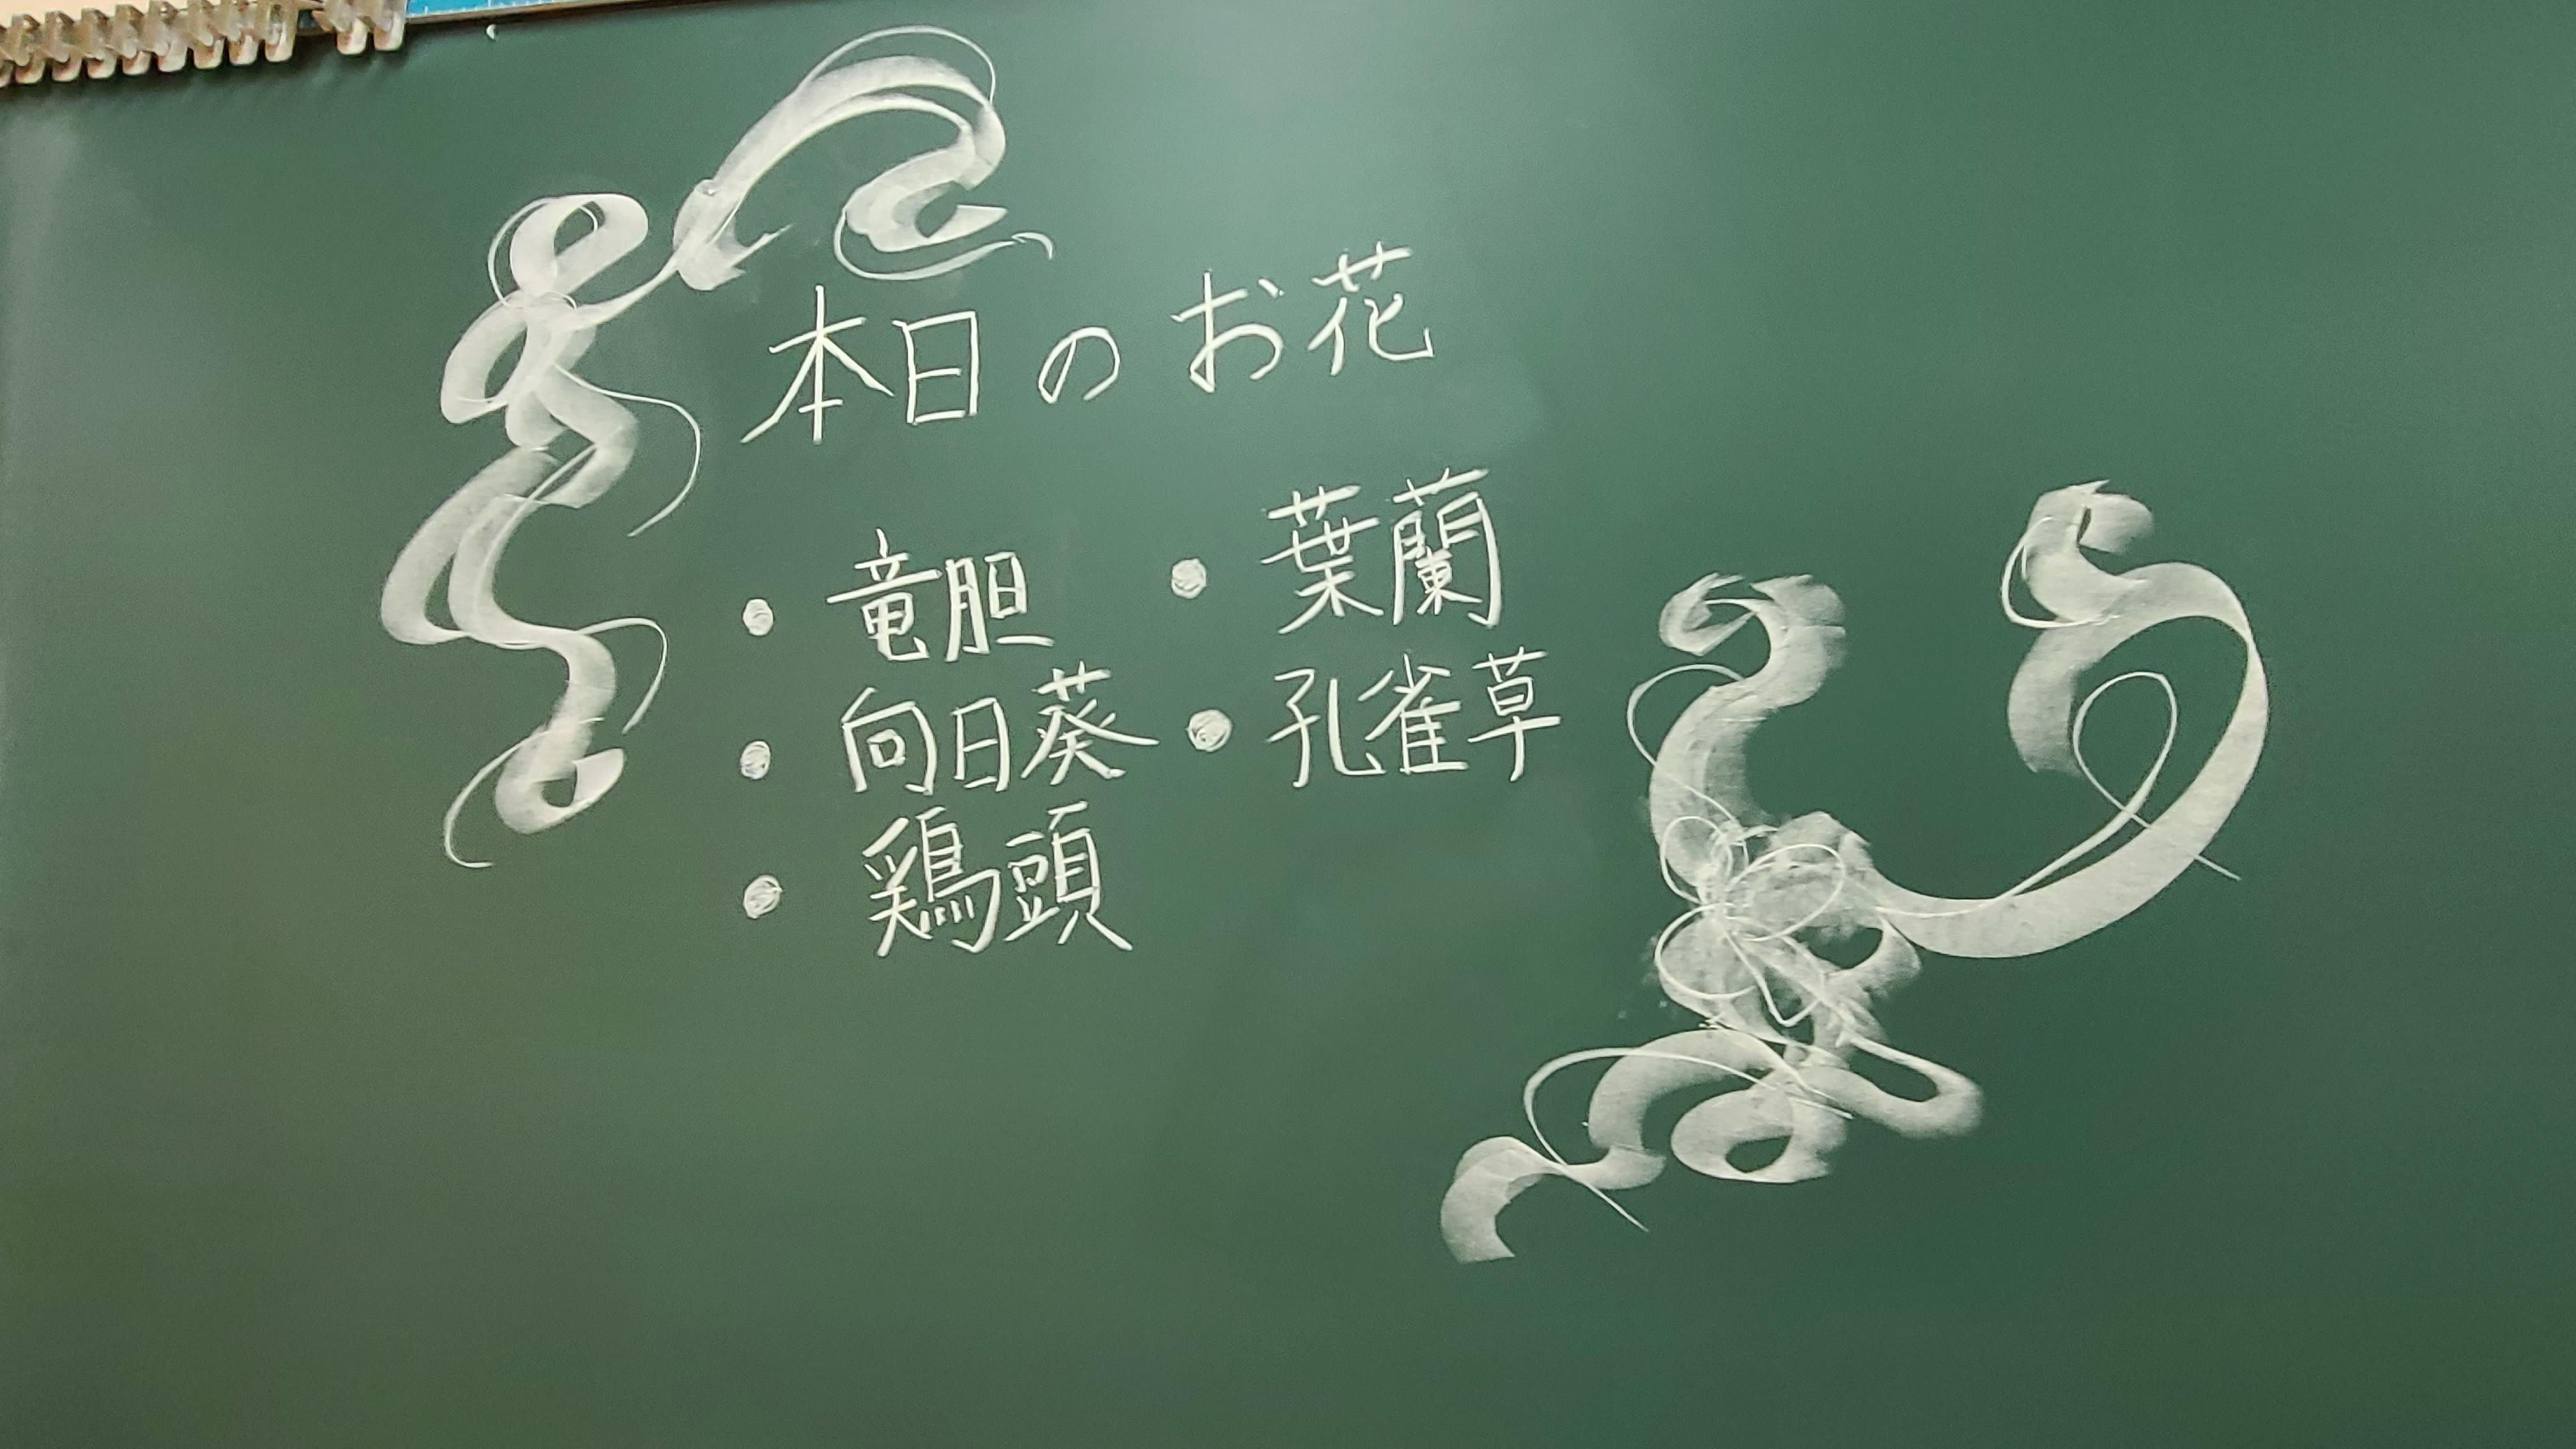 本日のお花
・竜胆
・向日葵
・鶏頭
・葉蘭
・孔雀草